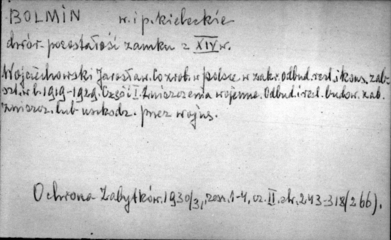 BOLMIN w. i p. kieleckie
dwór. pozostałość zamku z XIV w.
Wojciechowski Jarosław. Co zrob. w Polsce w zakr. odbud. rest. i kons. zab.
szt. w l. 1919-1929. Część I. Zniszczenia wojenne. Odbud. i rest. budow. zab.
zniszcz. lub uszkodz. przez wojnę.
Ochrona Zabytków. 1930/3, zesz. 1-4, cz. II. str. 243-318 (266).